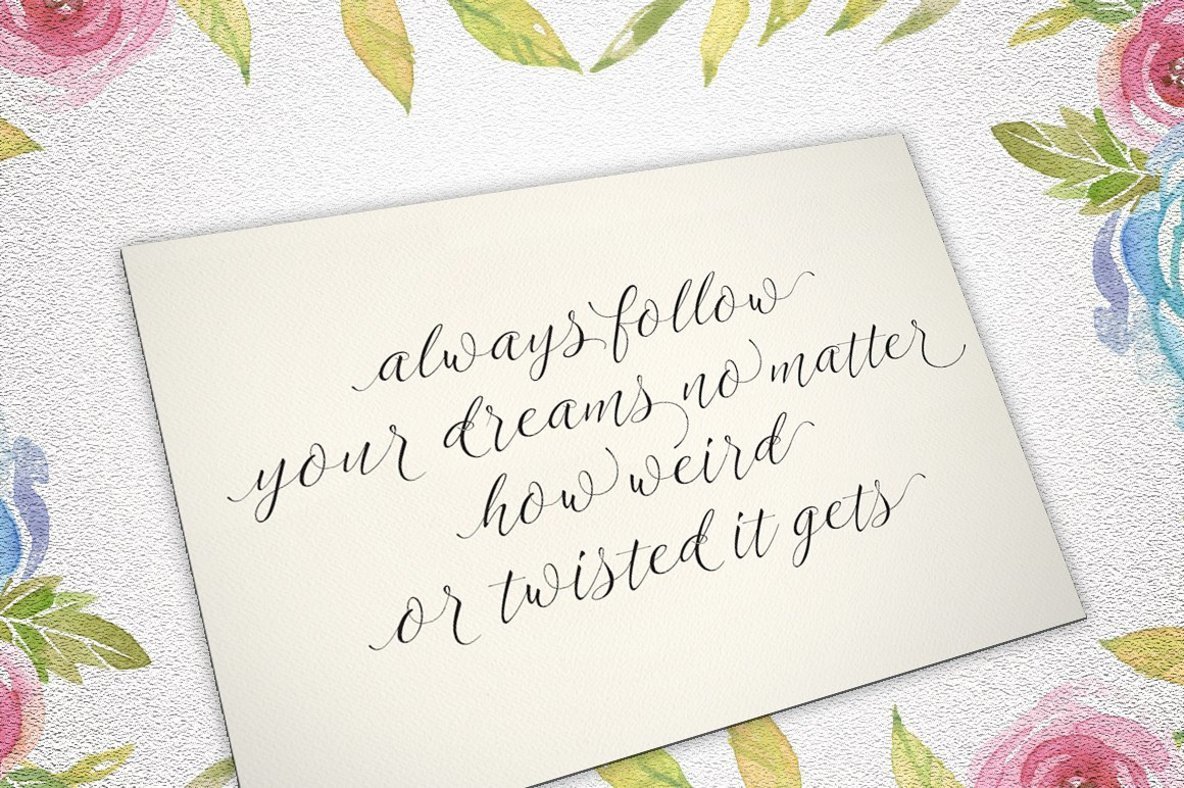 always follow
your dreams no matter
how weird
or twisted it gets